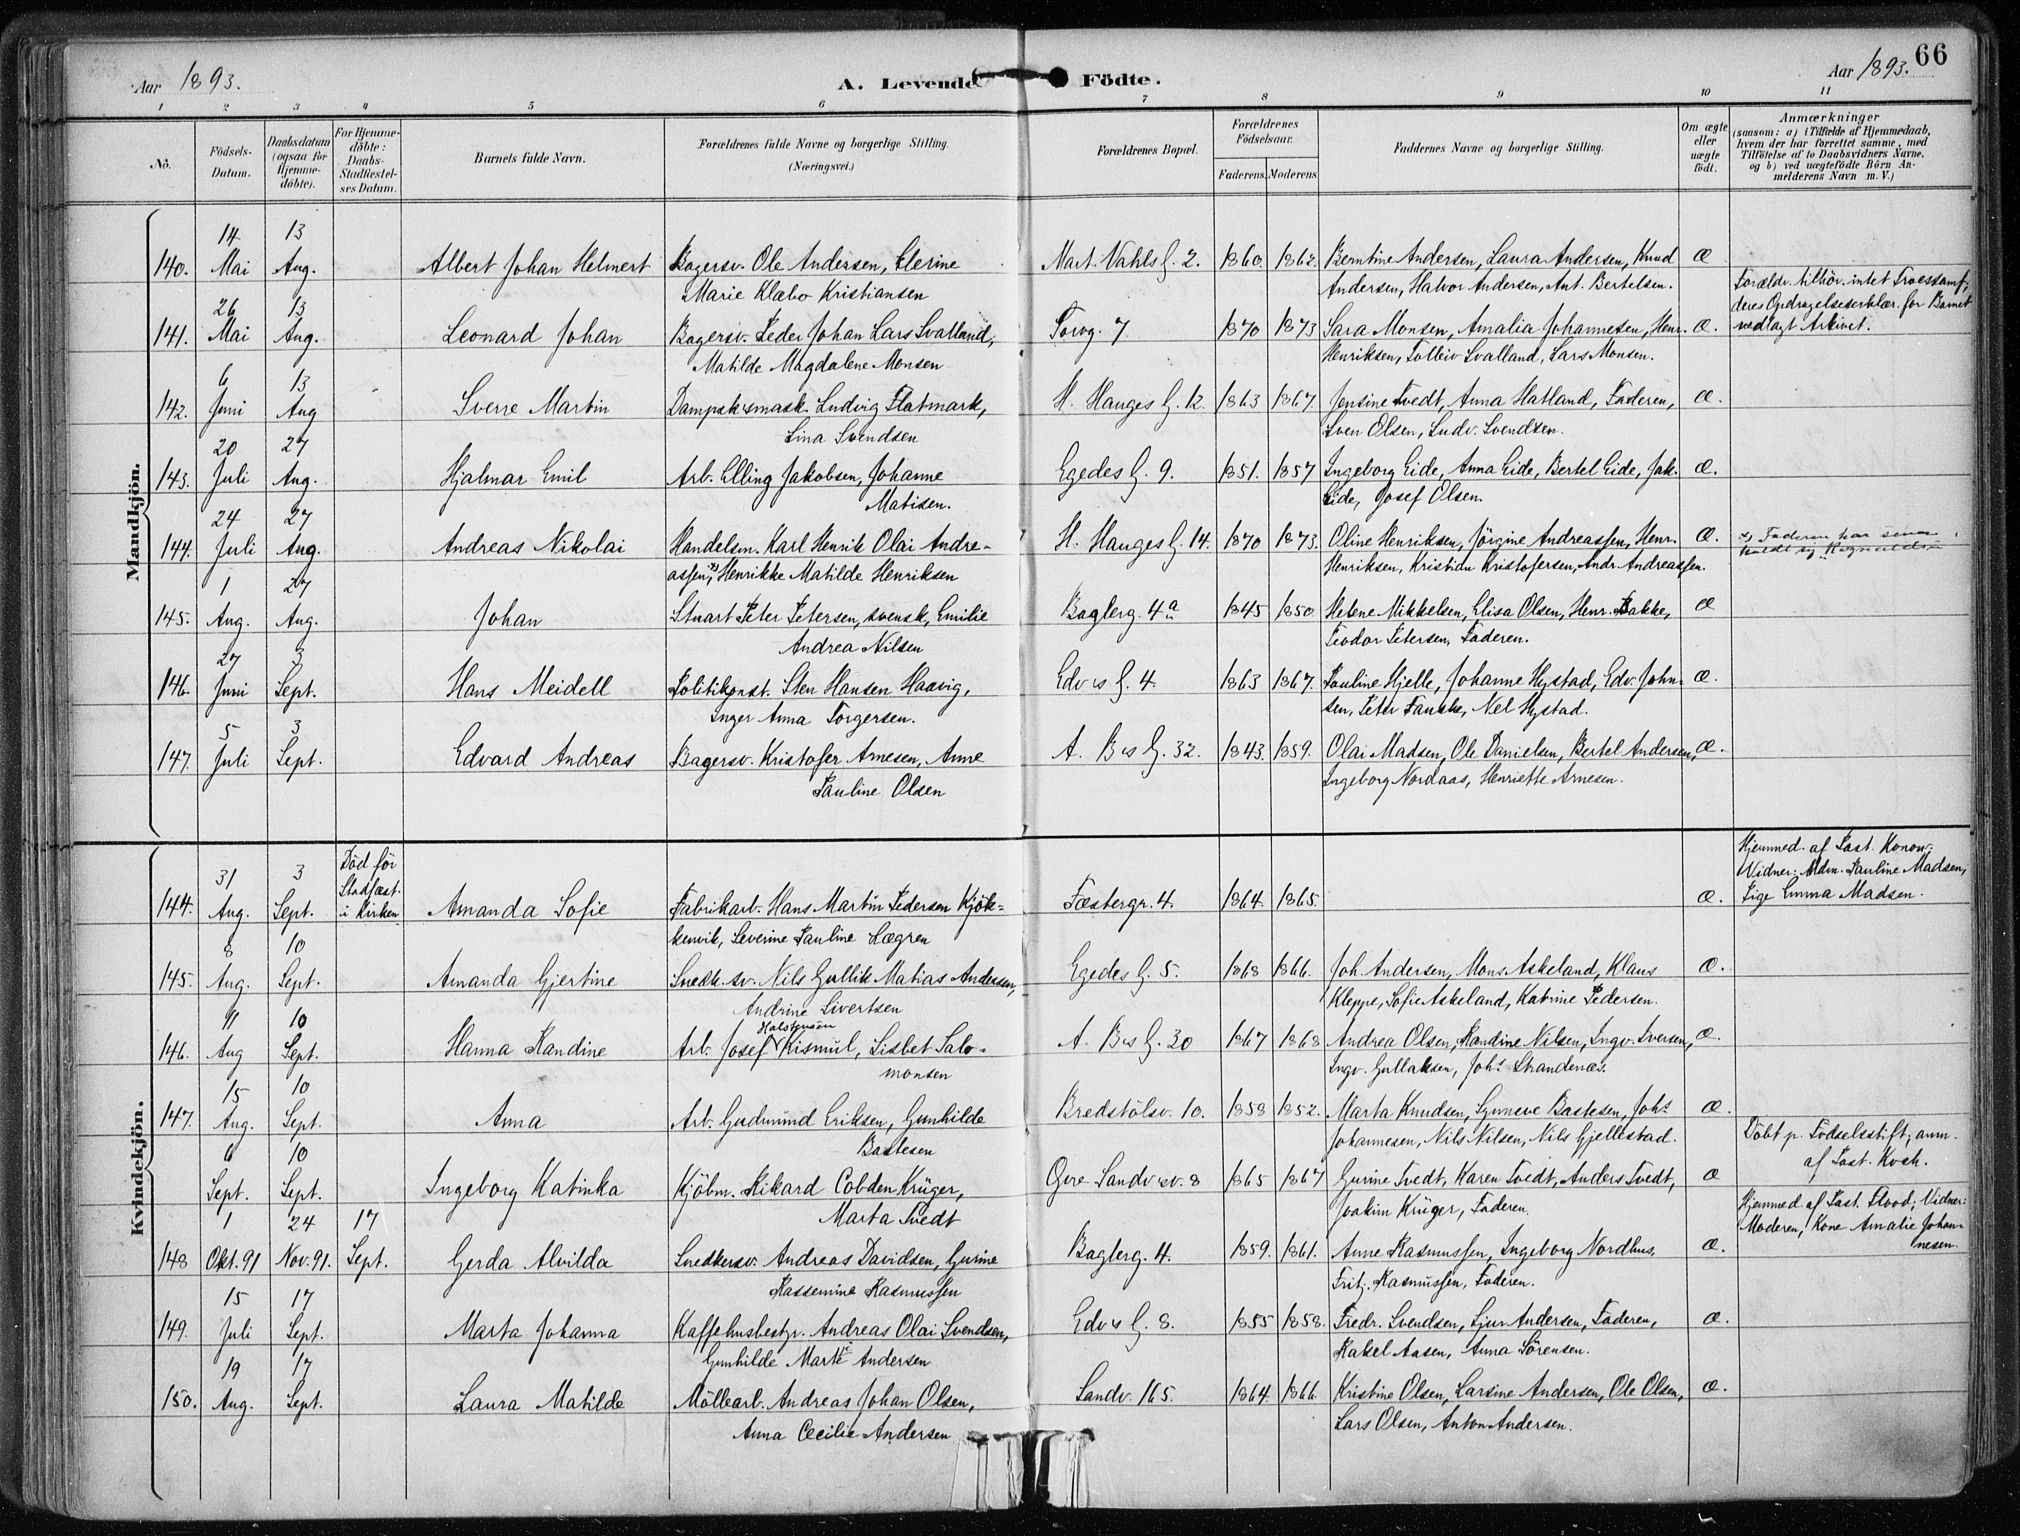 Aar 1893.
A. Levende Födte.
Aar 1893.
66
1 2 3 4 5 6 7 8 9 10 11
No.
Födsels-Datum.
Daabsdatum (ogsaa for Hjemme-döbte).
For Hjemme-döbte: Daabs-Stadfæstel-ses Datum.
Barnets fulde Navn.
Forældrenes fulde Navne og borgerlige Stilling.
(Næringsvei.)
Forældrenes Bopæl.
Forældrenes Födselsaar.
Faderens. Moderens.
Faddernes Navne og borgerlige Stilling.
Om ægte eller uægte födt.
Anmærkninger
(saasom: a) i Tilfælde af Hjemmedaab,
hvem der har forrettet samme, med
Tilföielse af to Daabsvidners Navne,
og b) ved uægtefödte Börn An-
melderens Navn m. V.)
Mandkjön.
140. 14 Mai 13 Aug. Albert Johan Helmert Bagersv. Ole Andersen, Elerine Mart. Vahls G. 2. 1860. 1862. Berntine Andersen, Laura Andersen, Knud Æ
Marie Klæbo Kristiansen Andersen, Halvor Andersen, Ant. Bertelsen.
Forældr. tilhör. intet Troessamf.,
deres Opdragelseserklær. for Barnet
vedlagt Arkivet.
141. 26 Mai 13 Aug. Leonard Johan Bagersv. Peder Johan Lars Svalland, Torvg. 7 1870 1873 Sara Monsen, Amalia Johannesen, Henr. Æ.
Matilde Magdalene Monsen Henriksen, Tolleiv Svalland, Lars Monsen.
142. 6 Juni 13 Aug Sverre Martin Dampsksmask. Ludvig Flatmark, H. Hauges G. 12. 1863 1867. Jensine Tvedt, Anna Hatland, Faderen, Æ.
Lina Svendsen Sven Olsen, Ludv. Svendsen.
143. 20 Juli 27 Aug. Hjalmar Emil Arb. Elling Jakobsen, Johanne Egedes G. 9. 1851. 1857 Ingeborg Eide, Anna Eide, Bertel Eide, Jak. Æ.
Matisen. Eide, Josef Olsen.
144. 24 Juli 27 Aug. Andreas Nikolai Handelsm. Karl Henrik Olai Andre- H. Hauges G. 14. 1870 1873. Oline Henriksen, Jörgine Andreassen, Henr. Æ.
assen,x) Henrikke Matilde Henriksen Henriksen, Kristian Kristofersen, Andr. Andreassen.
x) Faderen har senere
kaldt sig
145. 1 Aug. 27 Aug. Johan Stuart Peter Petersen, svensk, Emilie Baglerg. 4a 1845 1850. Helene Mikkelsen, Elisa Olsen, Henr. Bakke, Æ
Andrea Nilsen Teodor Petersen, Faderen.
146. 27 Juni 3 Sept. Hans Meidell Politikonst. Sten Hansen Haavig, Edv s G. 4. 1863 1867. Pauline Hjelle, Johanne Hystad, Edv. John- Æ.
Inger Anna Torgersen. sen, Peter Nel Hystad.
147. 5 Juli 3 Sept. Edvard Andreas Bagersv. Kristofer Arnesen, Anne A. B s G. 32. 1843. 1859. Olai Madsen, Ole Danielsen, Bertel Andersen, Æ.
Pauline Olsen Ingeborg Nordaas, Henriette Arnesen.
Kvindekjön.
144. 31 Aug. 3 Sept. Död för Stadfæst. i Kirken Amanda Sofie Fabrikarb. Hans Martin Pedersen Kjök- Fæstergr. 4. 1864. 1865. Æ.
kenvik, Severine Pauline Lægren
Hjemmed. af Past. Konow;
Vidner: Mdm. Pauline Madsen,
Pige Emma Madsen.
145. 8 Aug. 10 Sept. Amanda Gjertine Snedk. sv. Nils Gullik Matias Andersen, Egedes G. 5. 1868 1866. Joh. Andersen, Mons Askeland, Klaus Æ.
Andrine Sivertsen Kleppe, Sofie Askeland, Katrine Pedersen.
Halstensen
146. 11 Aug 10 Sept. Hanna Kandine Arb. Josef Kismul, Lisbet Salo- A. B s G. 30 1867 1868 Andrea Olsen, Kandine Nilsen, Ingv. Iversen, Æ.
monsen Ingv. Gullaksen, Johs Strandenæs.
147. 15 Aug. 10 Sept. Anna Arb. Gudmund Eriksen, Gunhilde Bredstölsv. 10. 1858 1852. Marta Knudsen, Synneve Bastesen, Johs Æ.
Bastesen Johannesen, Nils Nilsen, Nils Gjellestad.
Döbt p. Födselsstift., anm.
af Past. Koch.
6 Sept. 10 Sept. Ingeborg Katinka Kjöbm. Rikard Cobden Krüger, Övre Sandv sv. 8 1865 1867 Gurine Tvedt, Karen Tvedt, Anders Tvedt, Æ
Marta Tvedt Joakim Krüger, Faderen.
Hjemmed. af Past. Flood; Vidner:
Moderen, Kone Amalie Johan-
nesen.
148 1 Okt. 91 24 Nov. 91. 17 Sept. Gerda Alvilda Snedkersv. Andreas Davidsen, Gurine Baglerg. 4. 1859. 1861. Anne Rasmussen, Ingeborg Nordhus, Æ.
Rassemine Rasmussen Fritj. Rasmussen, Faderen.
149. 15 Juli 17 Sept. Marta Johanna Kaffehusbestyr. Andreas Olai Svendsen, Edv s G. 8. 1855 1858. Fredr. Svendsen, Sjur Andersen, Faderen, Æ.
Gunhilde Marte Andersen Rakel Aasen, Anna Sörensen.
150. 19 Aug. 17 Sept. Laura Matilde Möllearb. Andreas Johan Olsen, Sandv. 165. 1864. 1866. Kristine Olsen, Larsine Andersen, Ole Olsen, Æ.
Anna Cecilie Andersen Lars Olsen, Anton Andersen.